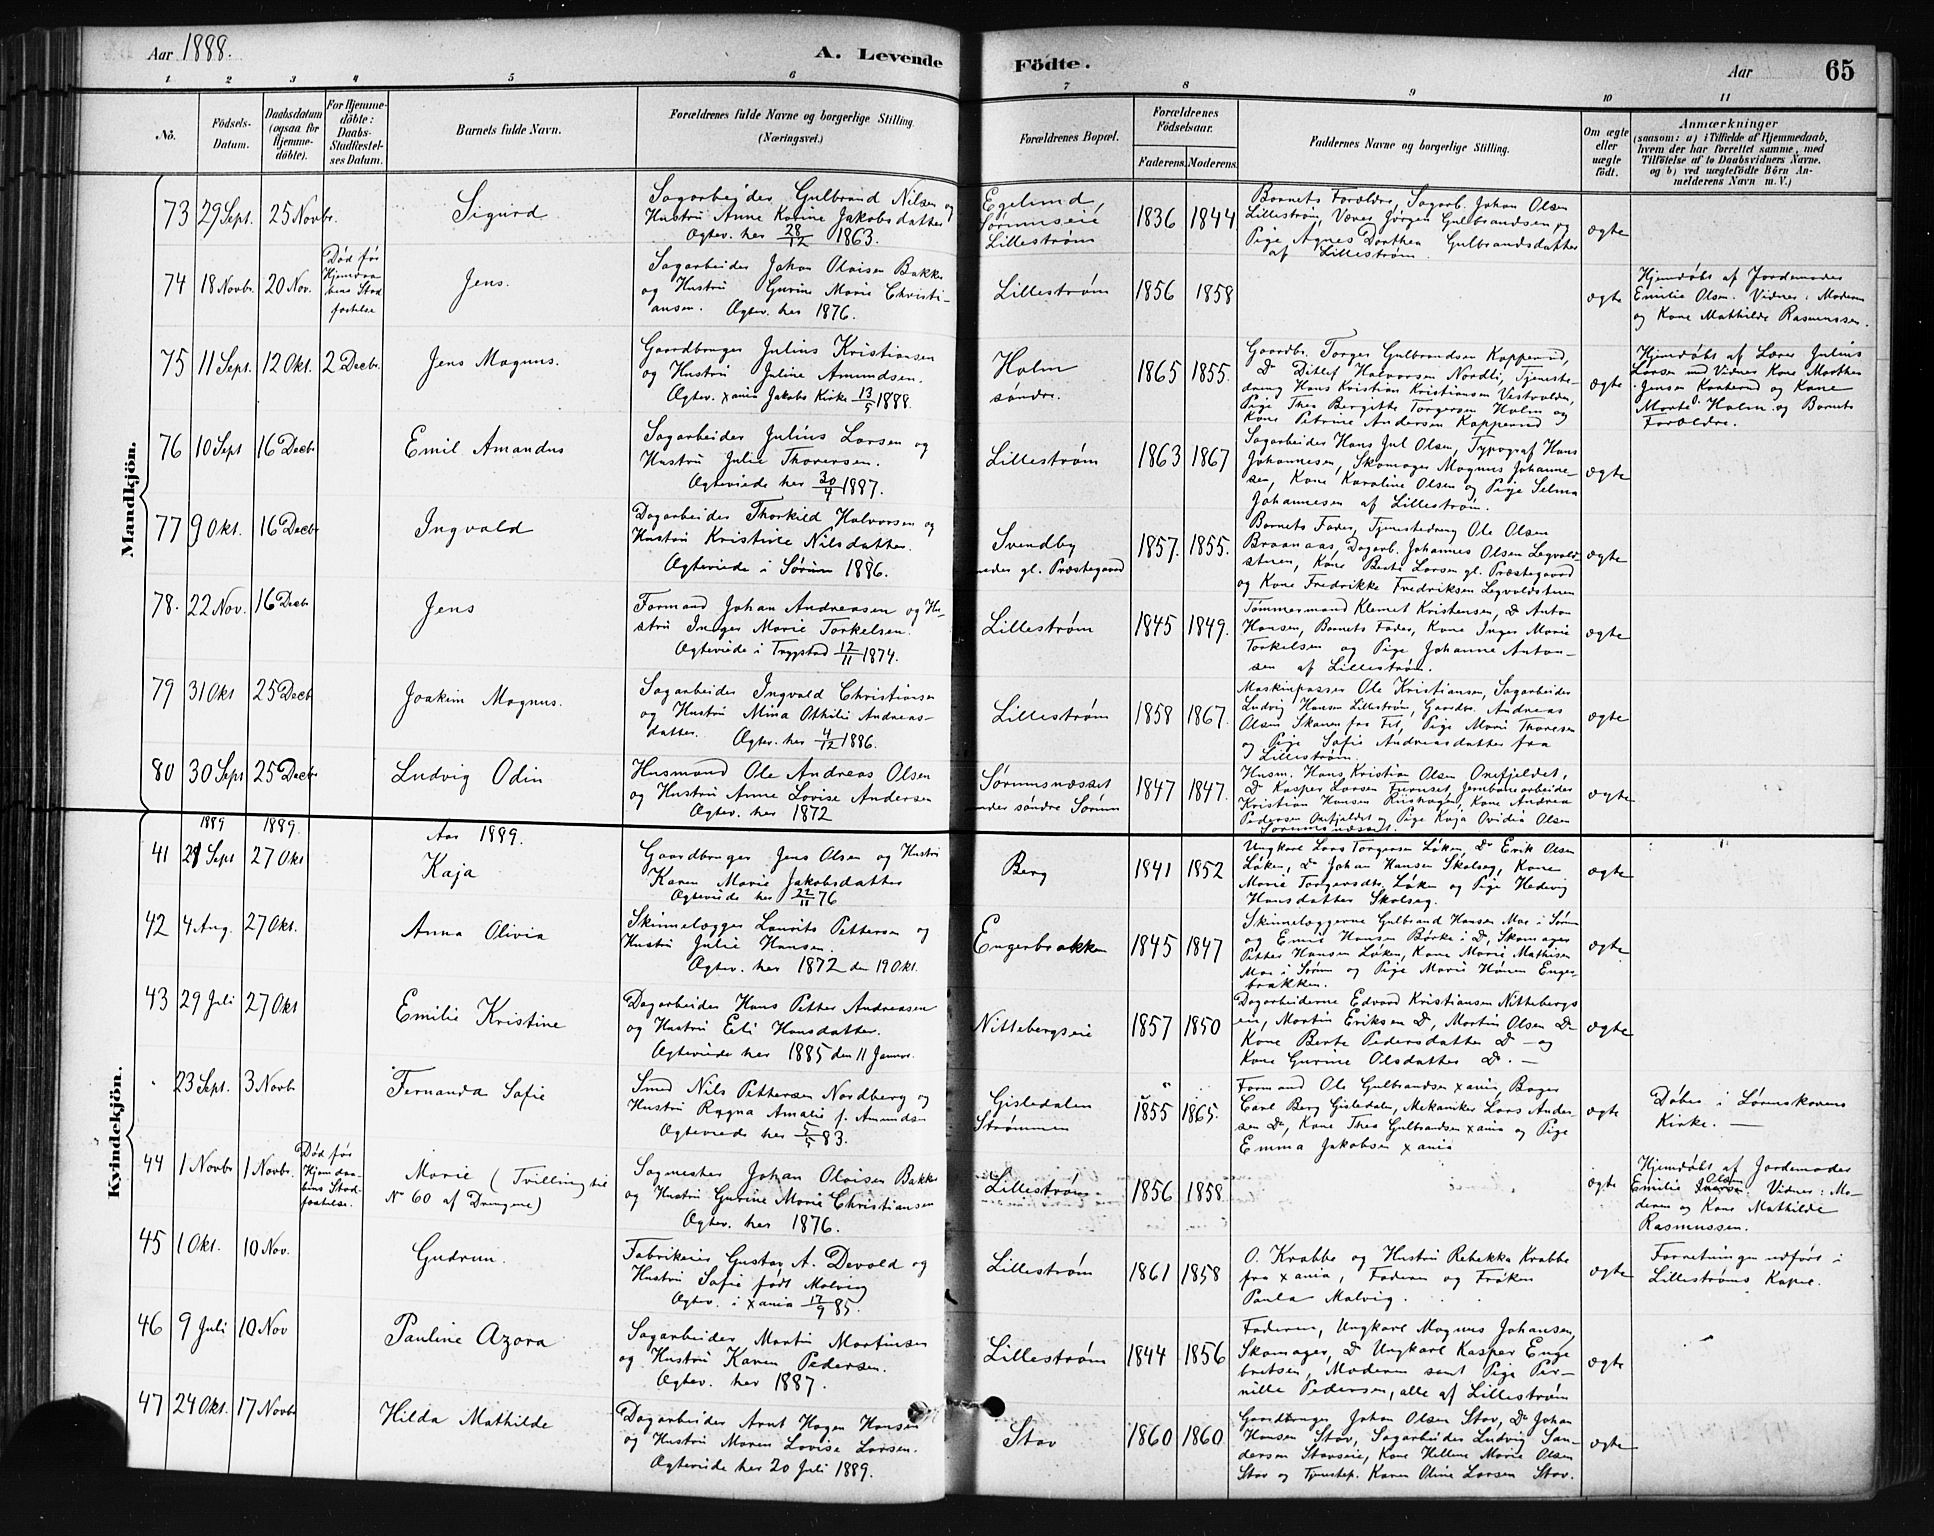 Aar 1888.
A. Levende Födte.
Aar 65
1 2 3 4 5 6 7 8 9 10 11
No.
Födsels-Datum.
Daabsdatum (ogsaa for Hjemmedöbte).
For Hjemmedöbte: Daabs-Stadfæstelses Datum.
Barnets fulde Navn.
Forældrenes fulde Navne og borgerlige Stilling.
(Næringsvei.)
Forældrenes Bopæl.
Forældrenes Födselsaar.
Faderens. Moderens.
Faddernes Navne og borgerlige Stilling.
Om ægte eller uægte födt.
Anmærkninger
(saasom: a) i Tilfælde af Hjemmedaab, hvem der har forrettet samme, med Tilföielse af to Daabsvidners Navne. og b) ved uægtefödte Börn Anmelderens Navn m. V.)
Mandkjön.
73 29 Sept. 25 Novbr. Sigurd
Sagarbeider Gulbrand Nilsen og
Hustru Anne Karine Jakobsdatter
Ægtev. her 28/12 1863.
Egelund, Sørumseie Lillestrøm
1836 1844
Barnets Forældre, Sagarb. Johan Olsen
Lillestrøm, Væver Jørgen Gulbrandsen og
Pige Agnes Dorthea Gulbrandsdatter
af Lillestrøm.
ægte
74 18 Novbr. 20 Nov. Død før Hjemdaabens Stadfæstelse
Jens.
Sagarbeider Johan Olaisen Bakke
og Hustru Gurine Marie Christiansen. Ægtev. her 1876.
Lillestrøm 1856 1858 ægte
Hjemdøbt af Jordemoder
Emilie Olsen. Vidner: Moderen
og Kone Mathilde Rasmussen.
75 11 Sept. 12 Okt. 2 Decbr. Jens Magnus.
Gaardbruger Julius Kristiansen
og Hustru Juline Amundsen.
Ægtev. Xania Jakobs Kirke 13/5 1888.
Holm søndre.
1865 1855.
Gaardbr. Torger Gulbrandsen Kopperud,
Do Ditlef Halvorsen Nordli, Tjenestedreng Hans Kristian Kristiansen Vestvolden,
Pige Thea Bergitte Torgersen Holm og
Kone Petrine Andersen Kopperud
ægte
Hjemdøbt af Lærer Julius
Larsen med Vidner Kone Marthe
Jensen og Kone
Marte Holm og Barnets
Forældre.
76 10 Sept 16 Decbr Emil Amandus
Sagarbeider Julius Larsen og
Hustru Julie Thoresen.
Ægteviede her 30/4 1887.
Lillestrøm 1863 1867
Sagarbeider Hans Jul Olsen, Typograf Hans
Johannesen, Skomager Magnus Johannesen, Kone Karoline Olsen og Pige Selma
Johannesen af Lillestrøm.
ægte
77 9 Okt. 16 Decbr Ingvald
Dagarbeider Thorkild Halvorsen og
Hustru Kristine Nilsdatter.
Ægteviede i Sørum 1886.
Svendby under gl. Præstegaard
1857. 1855.
Barnets Fader, Tjenestedreng Ole Olsen
Braanaas, Dagarb. Johannes Olsen Legvoldstuen, Kone Berte Larsen gl. Præstegaard
og Kone Fredrikke Fredriksen Legvoldstuen
ægte
78. 22 Nov. 16 Decbr Jens
Formand Johan Andreasen og Hustru Inger Marie Torkelsen.
Ægteviede i Trygstad 12/11 1874.
Lillestrøm 1845 1849.
Tømmermand Klemet Kristensen, Do Anton
Hansen, Barnets Fader, Kone Inger Marie
Torkelsen og Pige Johanne Antonsen af Lillestrøm.
ægte
79 31 Okt 25 Decbr Joakim Magnus.
Sagarbeider Ingvald Christiansen
og Hustru Mina Othilie Andreasdatter. Ægtev. her 4/12 1886.
Lillestrøm 1858 1867.
Maskinpasser Ole Kristiansen, Sagarbeider
Ludvig Hansen Lillestrøm, Gaardbr. Andreas
Olsen Skaren fra Fet, Pige Marie Thoresen
og Pige Sofie Andreasdatter fra
Lillestrøm.
ægte
80 30 Sept 25 Decbr Ludvig Odin
Husmand Ole Andreas Olsen
og Hustru Anne Lovise Andersen
Ægtev. her 1872
Sørumsnæsset under søndre Sørum
1847 1847.
Husm. Hans Kristian Olsen Onefjeldet,
Do Kasper Larsen Furuset, Jernbanearbeider
Kristian Hansen Riishagen, Kone Andrea
Pedersen Onefjeldet og Pige Kaja Ovidia Olsen
Sørumsnæsset.
ægte
Kvindekjön.
1889 1889. Aar 1889.
41 21 Sept 27 Okt Kaja
Gaardbruger Jens Olsen og Hustru
Karen Marie Jakobsdatter
Ægteviede her 22/11 76
Berg 1841 1852
Ungkarl Lars Torgersen Løken, Do Erik Olsen
Løken, Do Johan Hansen Skolseg, Kone
Marie Torgersdtr. Løken og Pige Hedvig
Hansdatter Skolseg.
ægte
42 4 Aug. 27 Okt. Anna Olivia
Skinnelægger Laurits Pettersen og
Hustru Julie Hansen.
Ægtev. her 1872 den 19 Okt.
Engerbrakken 1845 1847
Skinnelæggerne Gulbrand Hansen Moe i Sørum
og Emil Hansen Børke i Do, Skomager
Petter Hansen Løken, Kone Marie Mathisen
Moe i Sørum og Pige Marie Hansen Engerbrakken.
ægte
43 29 Juli 27 Okt Emilie Kristine
Dagarbeider Hans Petter Andreasen
og Hustru Eeli Hansdatter.
Ægteviede her 1885 den 11 Januar.
Nittebergseie 1857 1850
Dagarbeiderne Edvard Kristiansen Nittebergseie, Martin Eriksen Do, Martin Olsen Do
Kone Berte Pedersdatter Do og
Kone Gurine Olsdatter Do. —
ægte
23 Sept. 3 Novbr. Fernanda Sofie
Smed Nils Pettersen Nordberg og
Hustru Ragna Amalie f. Amundsen
Ægteviede her 5/5 83.
Gisledalen Strømmen
1855 1865.
Formand Ole Gulbrandsen Xania, Bager
Carl Berg Gisledalen, Mekaniker Lars Andersen Do, Kone Thea Gulbrandsen Xania og Pige
Emma Jakobsen Xania
ægte
Døbt i Lørenskovens
Kirke. —
44 1 Novbr 1 Novbr. Død før Hjemdaabens Stadfæstelse.
Marie (Tvilling til
No 60 af Drengene)
Sagmester Johan Olaisen Bakke
og Hustru Gurine Marie Christiansen
Ægtev. her 1876.
Lillestrøm 1856 1858. ægte
Hjemdøbt af Jordemoder
Emilie Olsen. Vidner: Moderen og Kone Mathilde
Rasmussen.
45 1 Okt. 10 Nov. Gudrun.
Fabrikeier Gustav A. Devold og
Hustru Sofie født Malvig
Ægtev. i Xania 17/9 85.
Lillestrøm 1861 1858
O. Krabbe og Hustru Rebekka Krabbe
fra Xania, Faderen og Frøken
Paula Malvig.
ægte
Forretningen udført i
Lillestrøms Kapel.
46 9 Juli 10 Nov Pauline Azora
Sagarbeider Martin Martinsen
og Hustru Karen Pedersen.
Ægtev. her 1887.
Lillestrøm 1844 1856
Faderen, Ungkarl Magnus Johansen,
Skomager, Do Ungkarl Kasper Engebretsen, Moderen samt Pige Pernille Pedersen, alle af Lillestrøm
ægte
47 24 Okt. 17 Novbr Hilda Mathilde
Dagarbeider Arnt Hagen Hansen
og Hustru Maren Lovise Larsen.
Ægteviede her 20 Juli 1889.
Stav 1860 1860
Gaardbruger Johan Olsen Stav, Do Johan
Hansen Stav, Sagarbeider Ludvig Sandersen Stavseie, Kone Helene Marie Olsen
Stav og Tjenstep. Karen Oline Larsen Stav.
ægte